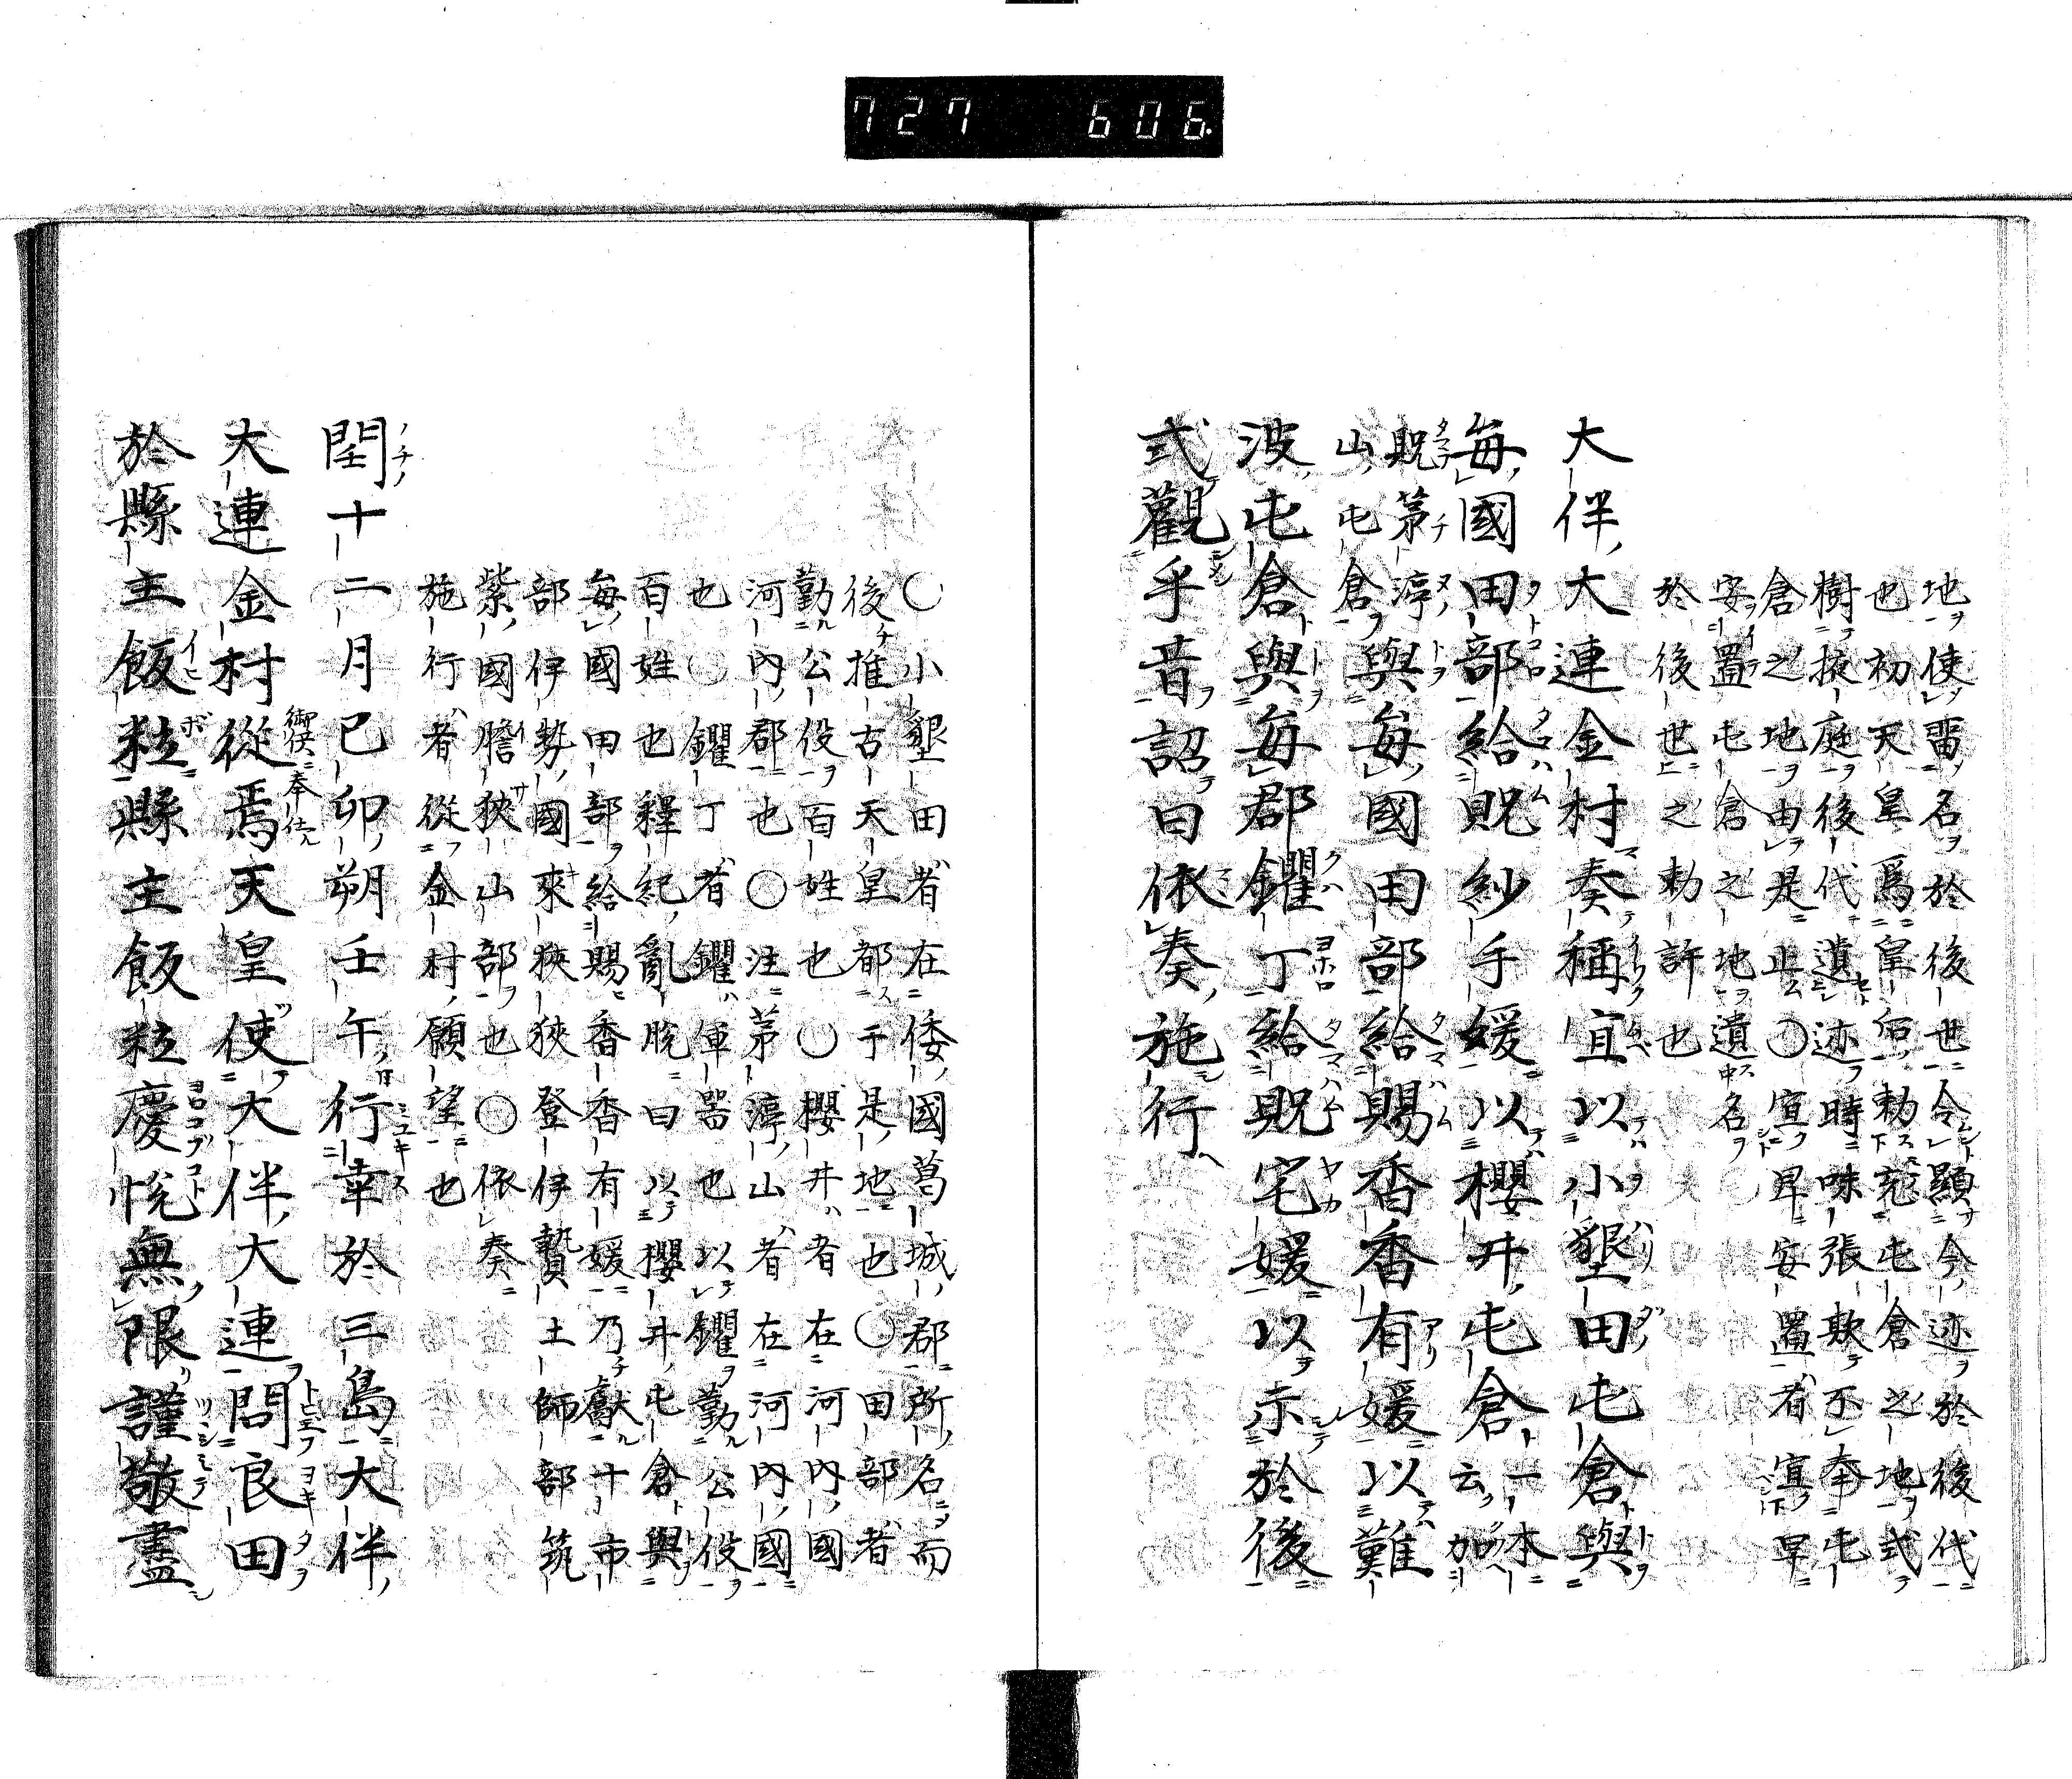 727 606.
地使畱名於後世令顯今迹於後代
也初天皇爲皇后勅充屯倉之地式
樹掖庭後代遺迹時味張欺不奉屯
倉之地由是止○宣早安置者宣早
安置屯倉之地遺名
於後世之勅許也
大伴大連金村奏稱宜以小墾田屯倉與
每國田部給貺紗手媛以櫻井屯倉一本云加
貺茅渟山屯倉與每國田部給賜香香有媛以難
波屯倉與每郡钁丁給貺宅媛以示於後
式觀乎昔詔曰依奏施行
○小墾田者在倭國葛城郡所名而
後推古天皇都于是地也○田部者
勤公役百姓也○櫻井者在河內國
河內郡也○注茅渟山者在河內國
也○钁丁者钁軍器也以钁勤公役
百姓也釋紀亂脫曰以櫻井屯倉與
每國田部給賜香香有媛乃獻十市
部伊勢國來狹狹登伊贄土師部筑
紫國膽狹山部也○依奏
施行者從金村願望也
閏十二月己卯朔壬午行幸於三島大伴
大連金村從焉天皇使大伴大連問良田
於縣主飯粒縣主飯粒慶悅無限謹敬盡